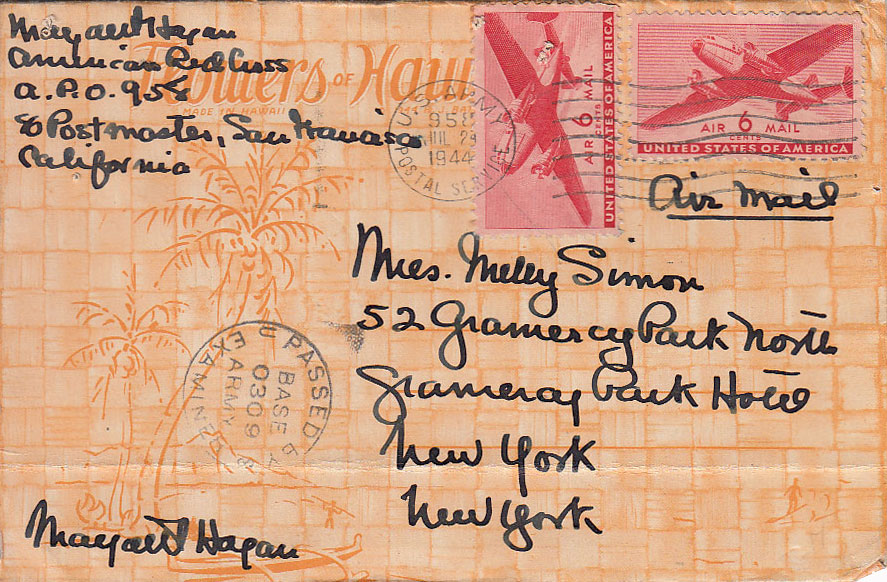 Margaret Hagan
American Red Cross
A.P.O. 958
c/o Postmaster, San Francisco
California
Flowers OF Hawaii
MADE IN HAWAII
U.S. ARMY
958
JUL 29
1944
POSTAL SERVICE
AIR 6 MAIL
CENTS
UNITED STATES OF AMERICA
AIR 6 MAIL
CENTS
UNITED STATES OF AMERICA
Air Mail
Mrs. Melly Simon
52 Gramercy Park North
Gramercy Park Hotel
New York
New York
PASSED BY
BASE
0309
ARMY
EXAMINER
Margaret Hagan